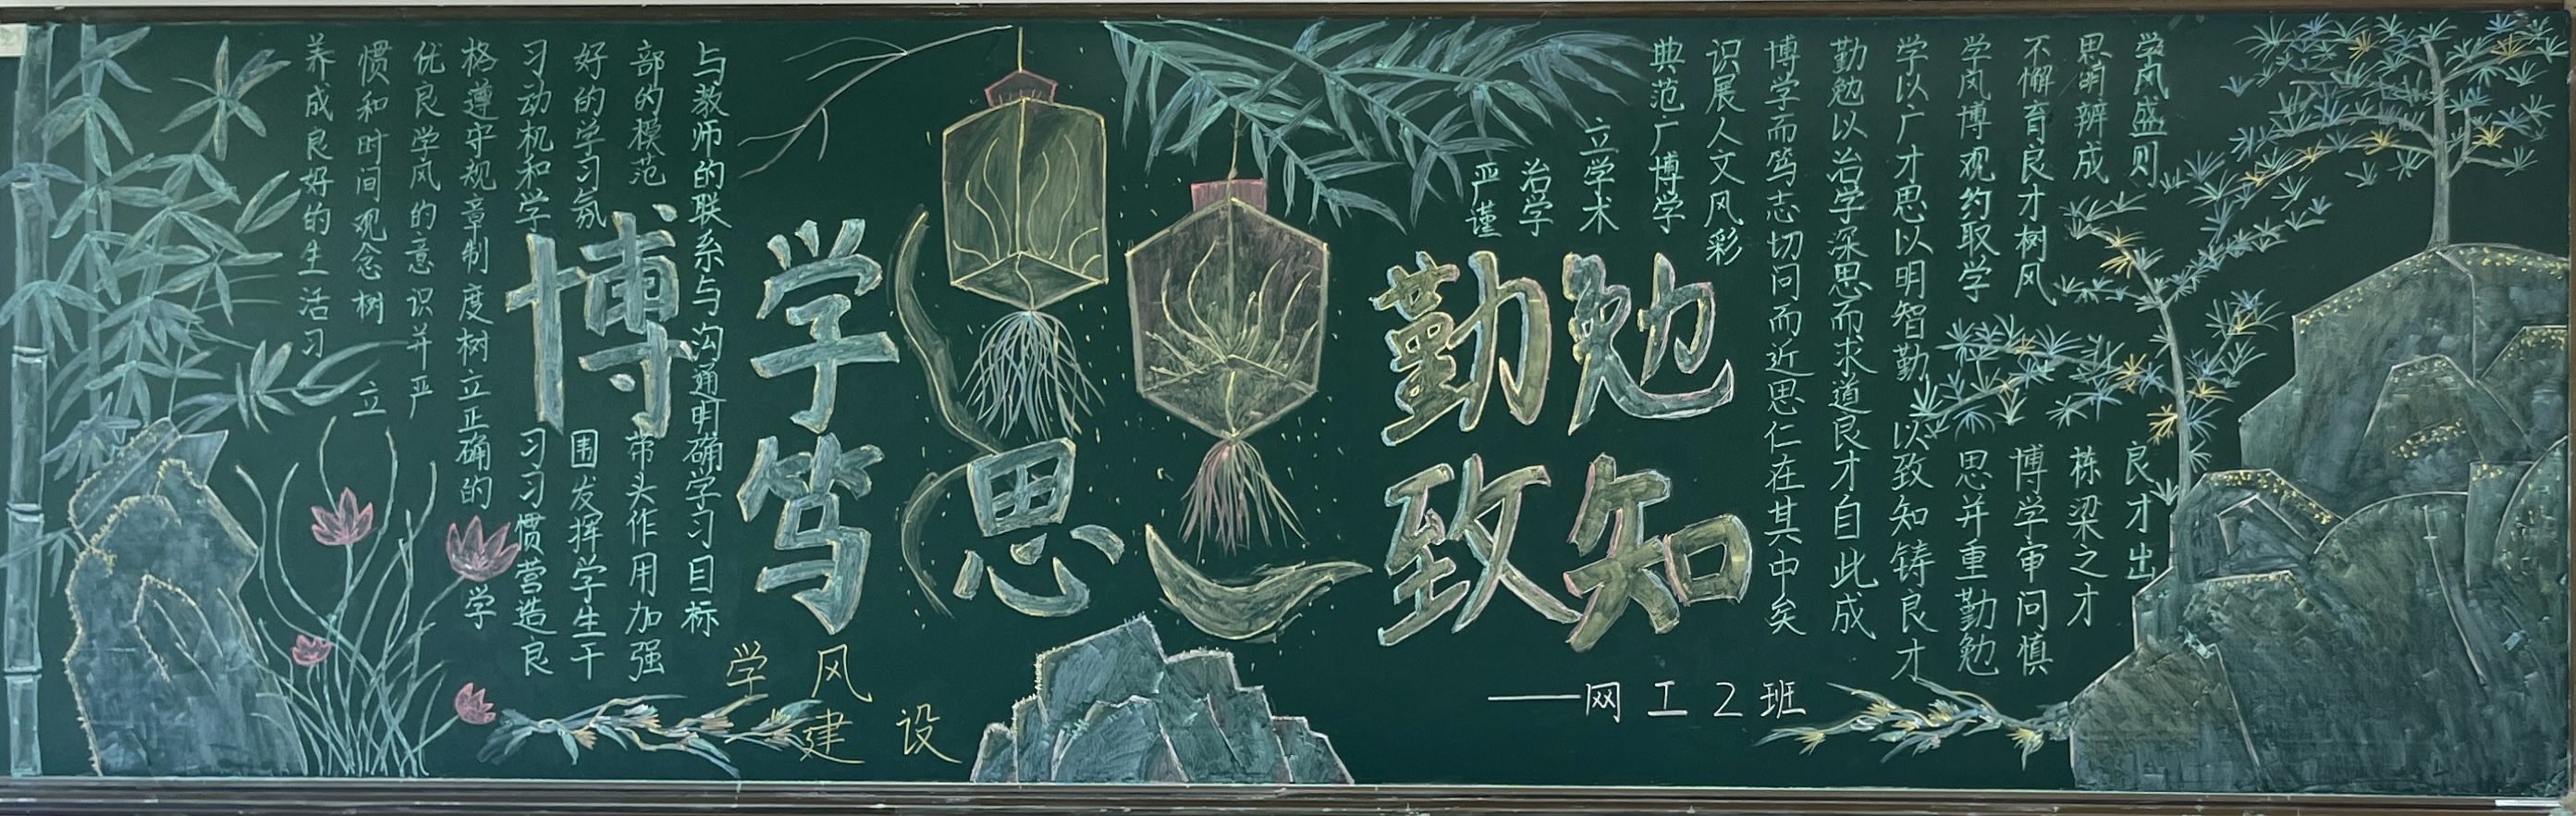 养成良好的生活习
惯和时间观念树立
优良学风的意识并严
格遵守规章制度树立正确的学
习动机和学习习惯营造良
好的学习氛围发挥学生干
部的模范带头作用加强
与教师的联系与沟通明确学习目标
博学
笃思
学风
建设
勤勉
致知
——网工2班
严谨
治学
立学术
典范广博学
识展人文风彩
博学而笃志切问而近思仁在其中矣
勤勉以治学深思而求道良才自此成
学以广才思以明智勤以致知铸良才
学风博观约取学思并重勤勉
不懈育良才树风博学审问慎
思明辨成栋梁之才
学风盛则良才出